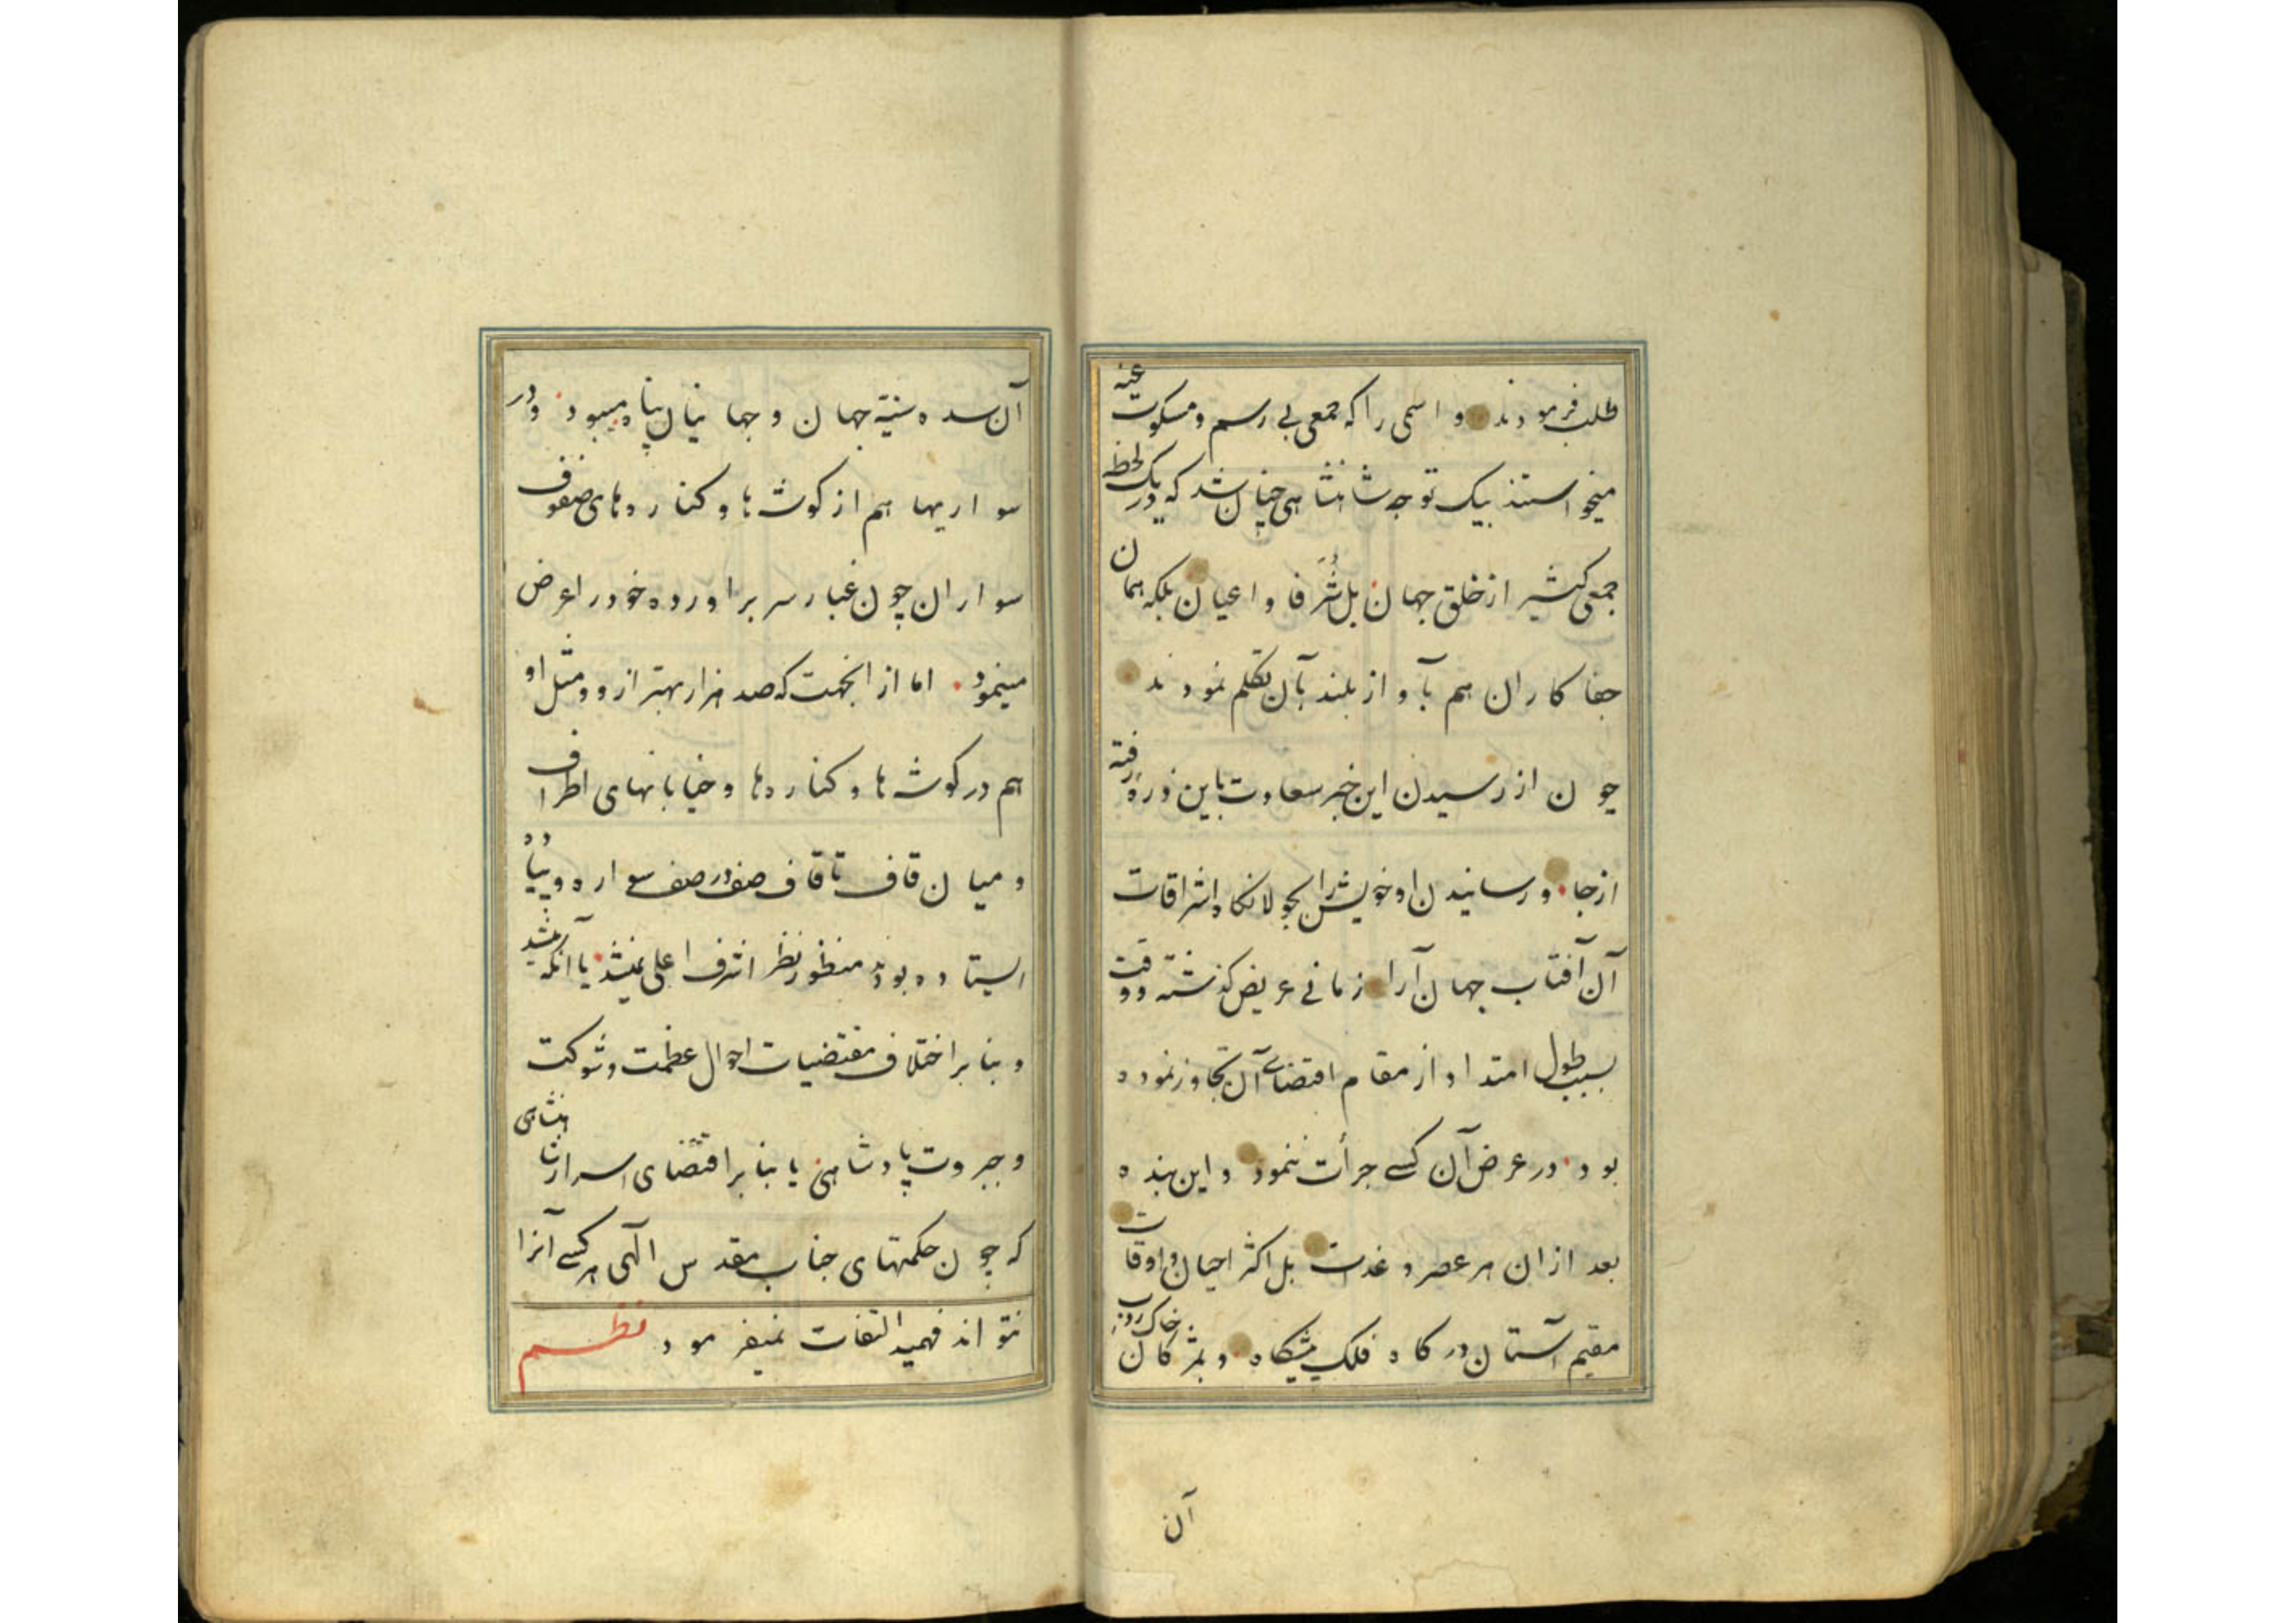 طلب فرمودند و اسمی را که جمعی بی رسم و مسکوت عنه
میخواستند بیک توجه شاهنشاهی چنان شد که در یک لحظه
جمعی کثیر از خلق جهان بل شُرَفا و اعیان بلکه همان
جفا کاران هم بآواز بلند بآن تکلم نمودند
چون از رسیدن این خبر سعادت باین ذره رفته
از جا و رسانیدن او خویش را بجولانکاه اشراقات
آن آفتاب جهان آرا زمانی عریض کذشته و وقت
بسبب طول امتداد از مقام اقتضای آن تجاوز نموده
بود در عرض آن کسی جرأت ننمود و این بنده
بعد ازان هر عصر و غدات بل اکثر احیان و اوقات
مقیم آستان درکاه فلک پیشکاه و بمژکان خاک روب
آن
آن سده سنیّهٔ جهان و جهانیان پناه میبود و در
سواریها هم از کوشها و کنارهای صفوف
سواران چون غبار سر براورده خود را عرض
مینمود اما از انجهت که صد هزار بهتر از و و مثل او
هم در کوشه ها و کناره ها و خیابانهای اطراف
و میان قاف تا قاف صف در صف سواره و پیاده
ایستاده بودند منظور نظر اشرف اعلی نمیشد یا آنکه
و بنا بر اختلاف مقتضیات احوال عظمت و شوکت
و جبروت پادشاهی یا بنا بر اقتضای اسرار شاهنشاهی
که چون حکمتهای جناب مقدس الهی هر کسی آنرا
نتواند فهمید التفات نمیفرمود نظم